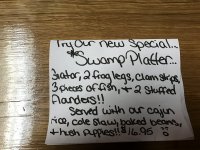 Try Our new Special...
*Swamp Platter...
3gator, 2 frog legs, clam strips,
3 pieces of fish, + 2 stuffed
flanders!!
Served with our cajun
rice, cole slaw, baked beans,
+ hush puppies!! $16.95